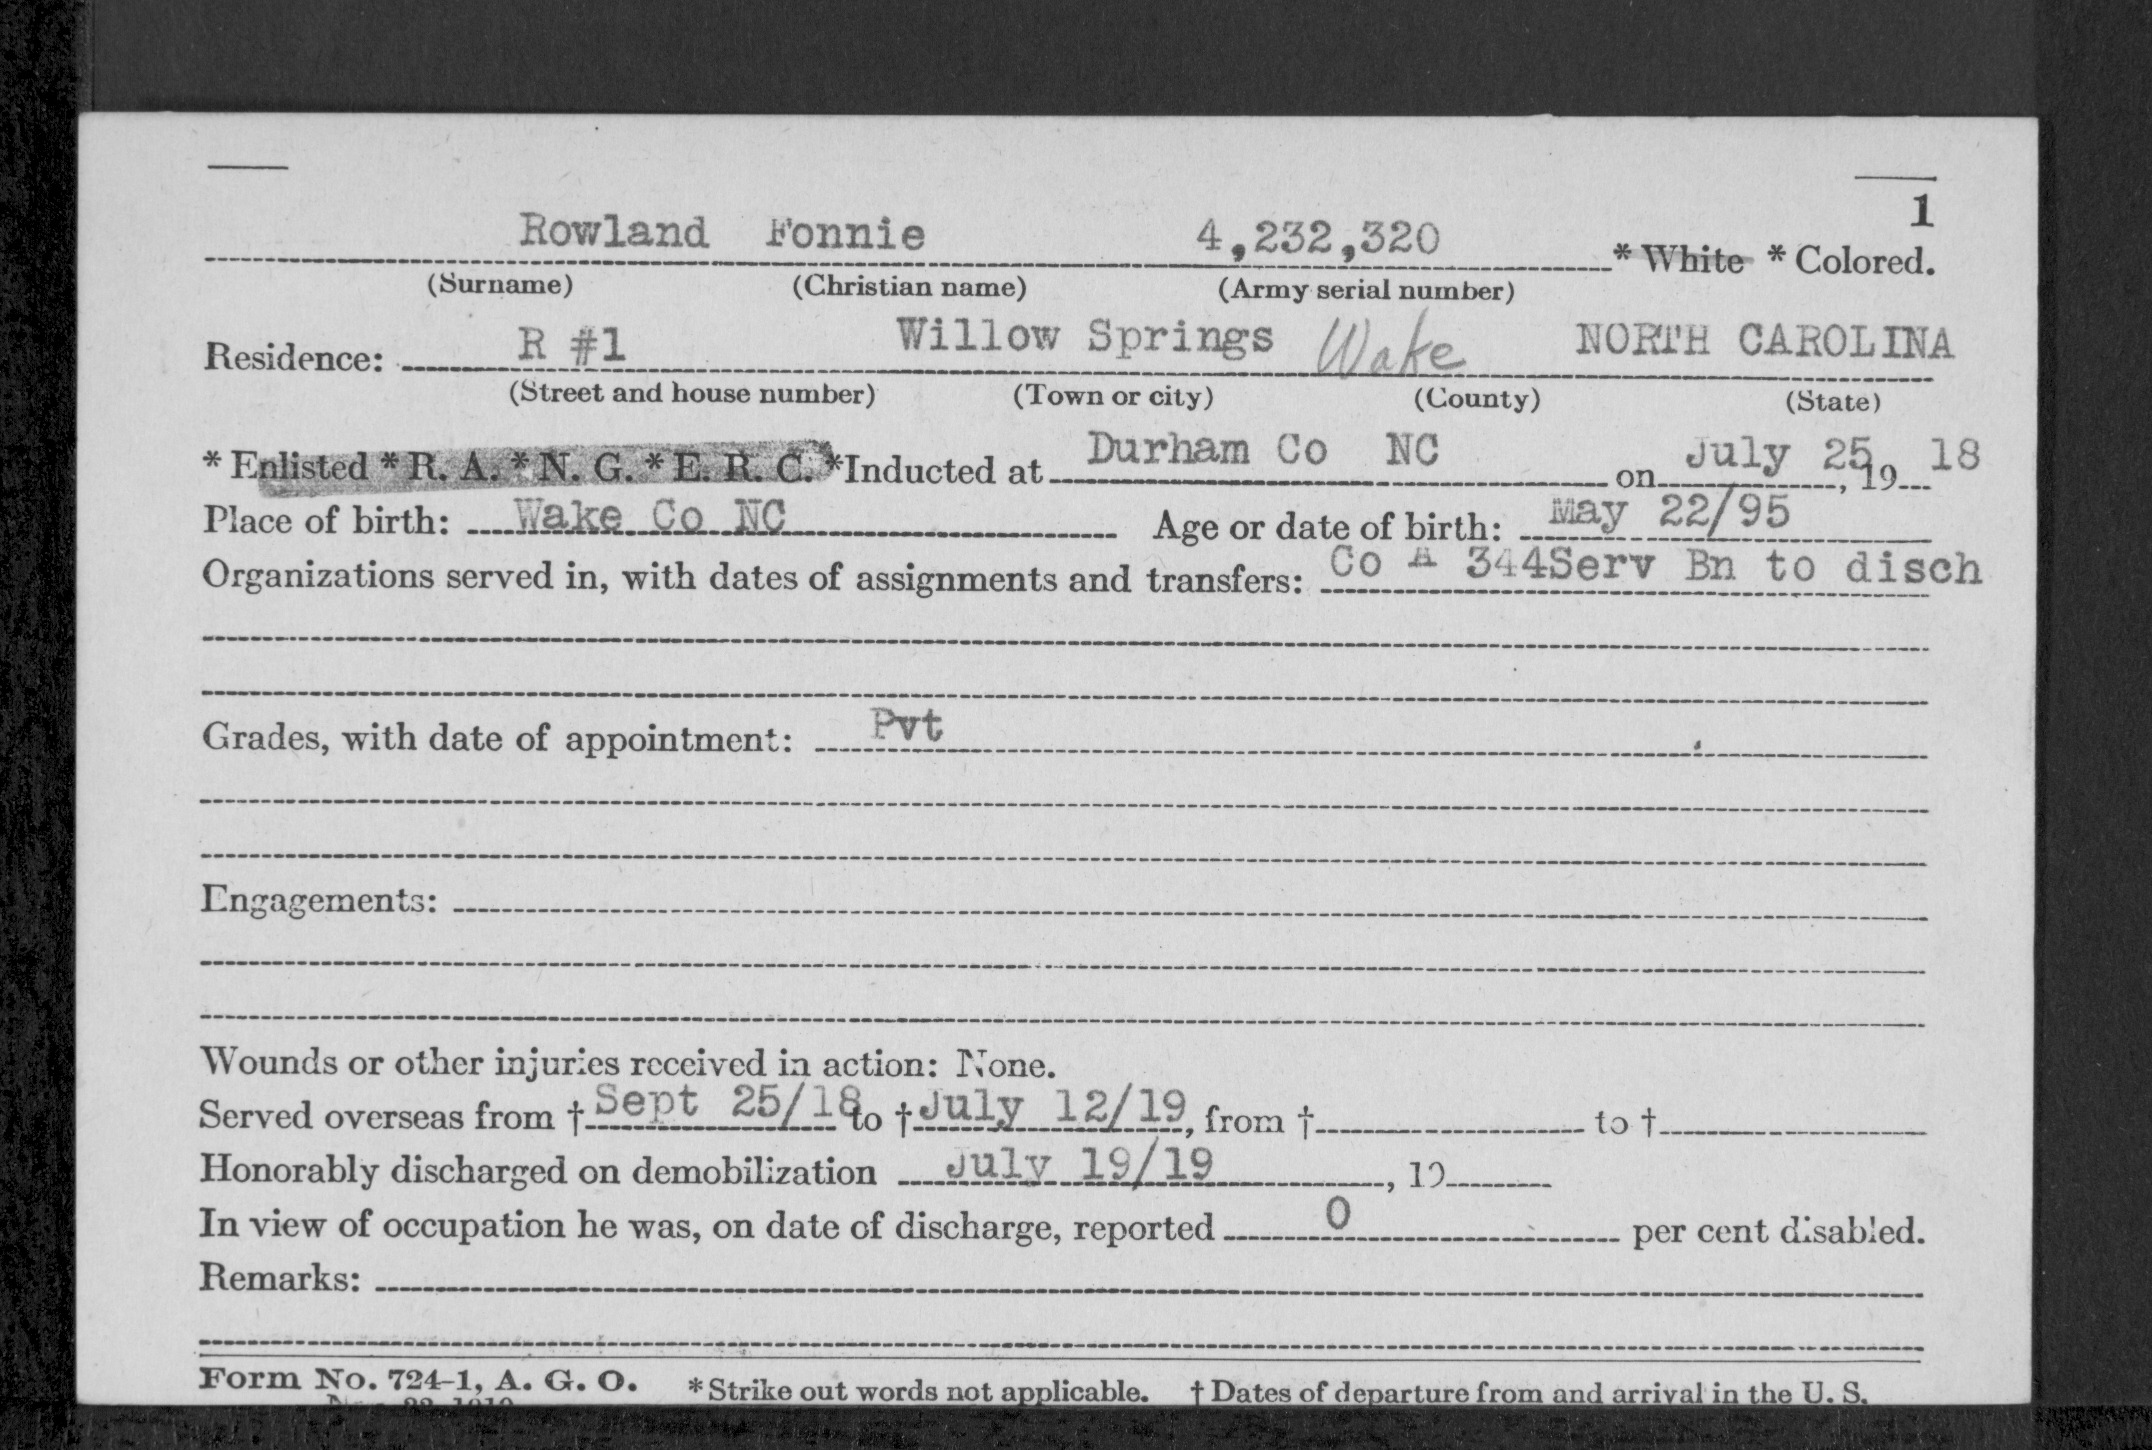 1
Rowland Fonnie 4,232,320 * White * Colored.
(Surname) (Christian name) (Army serial number)
Residence: R #1 Willow Springs Wake NORTH CAROLINA
(Street and house number) (Town or city) (County) (State)
* Enlisted * R. A. * N. G. * E. R. C. *Inducted at Durham Co NC on July 25, 19 18
Place of birth: Wake Co NC Age or date of birth: May 22/95
Organizations served in, with dates of assignments and transfers: Co A 344Serv Bn to disch
Grades, with date of appointment: Pvt
Engagements:
Wounds or other injuries received in action: None.
Served overseas from † Sept 25/18 to † July 12/19, from † to †
Honorably discharged on demobilization July 19/19, 19
In view of occupation he was, on date of discharge, reported 0 per cent disabled.
Remarks:
Form No. 724-1, A. G. O. * Strike out words not applicable. † Dates of departure from and arrival in the U. S.